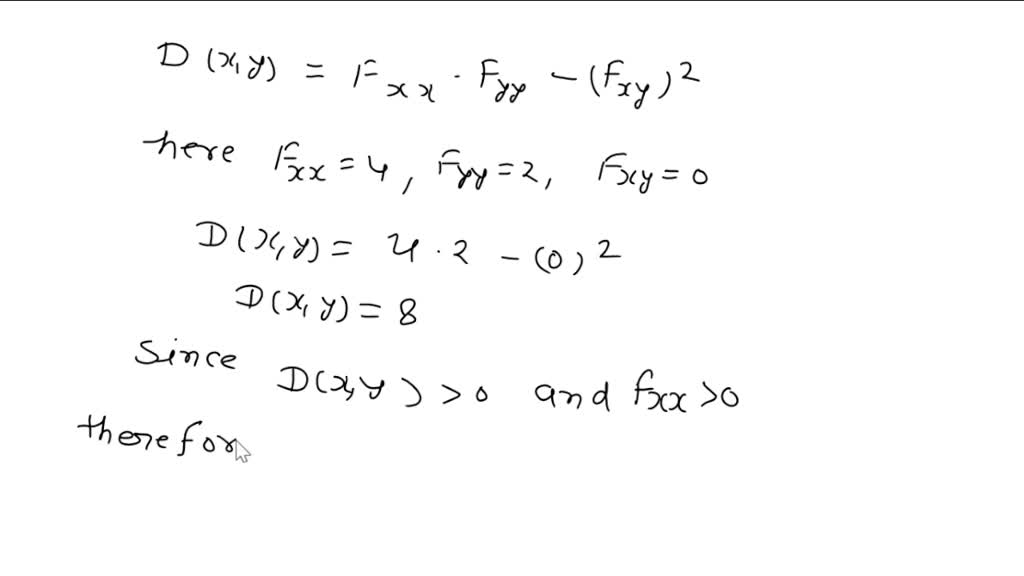 D(x,y) = Fxx · Fyy − (fxy)²
here Fxx = 4, Fyy = 2, Fxy = 0
D(x,y) = 4 · 2 − (0)²
D(x,y) = 8
Since D(x,y) > 0 and fxx > 0
therefor